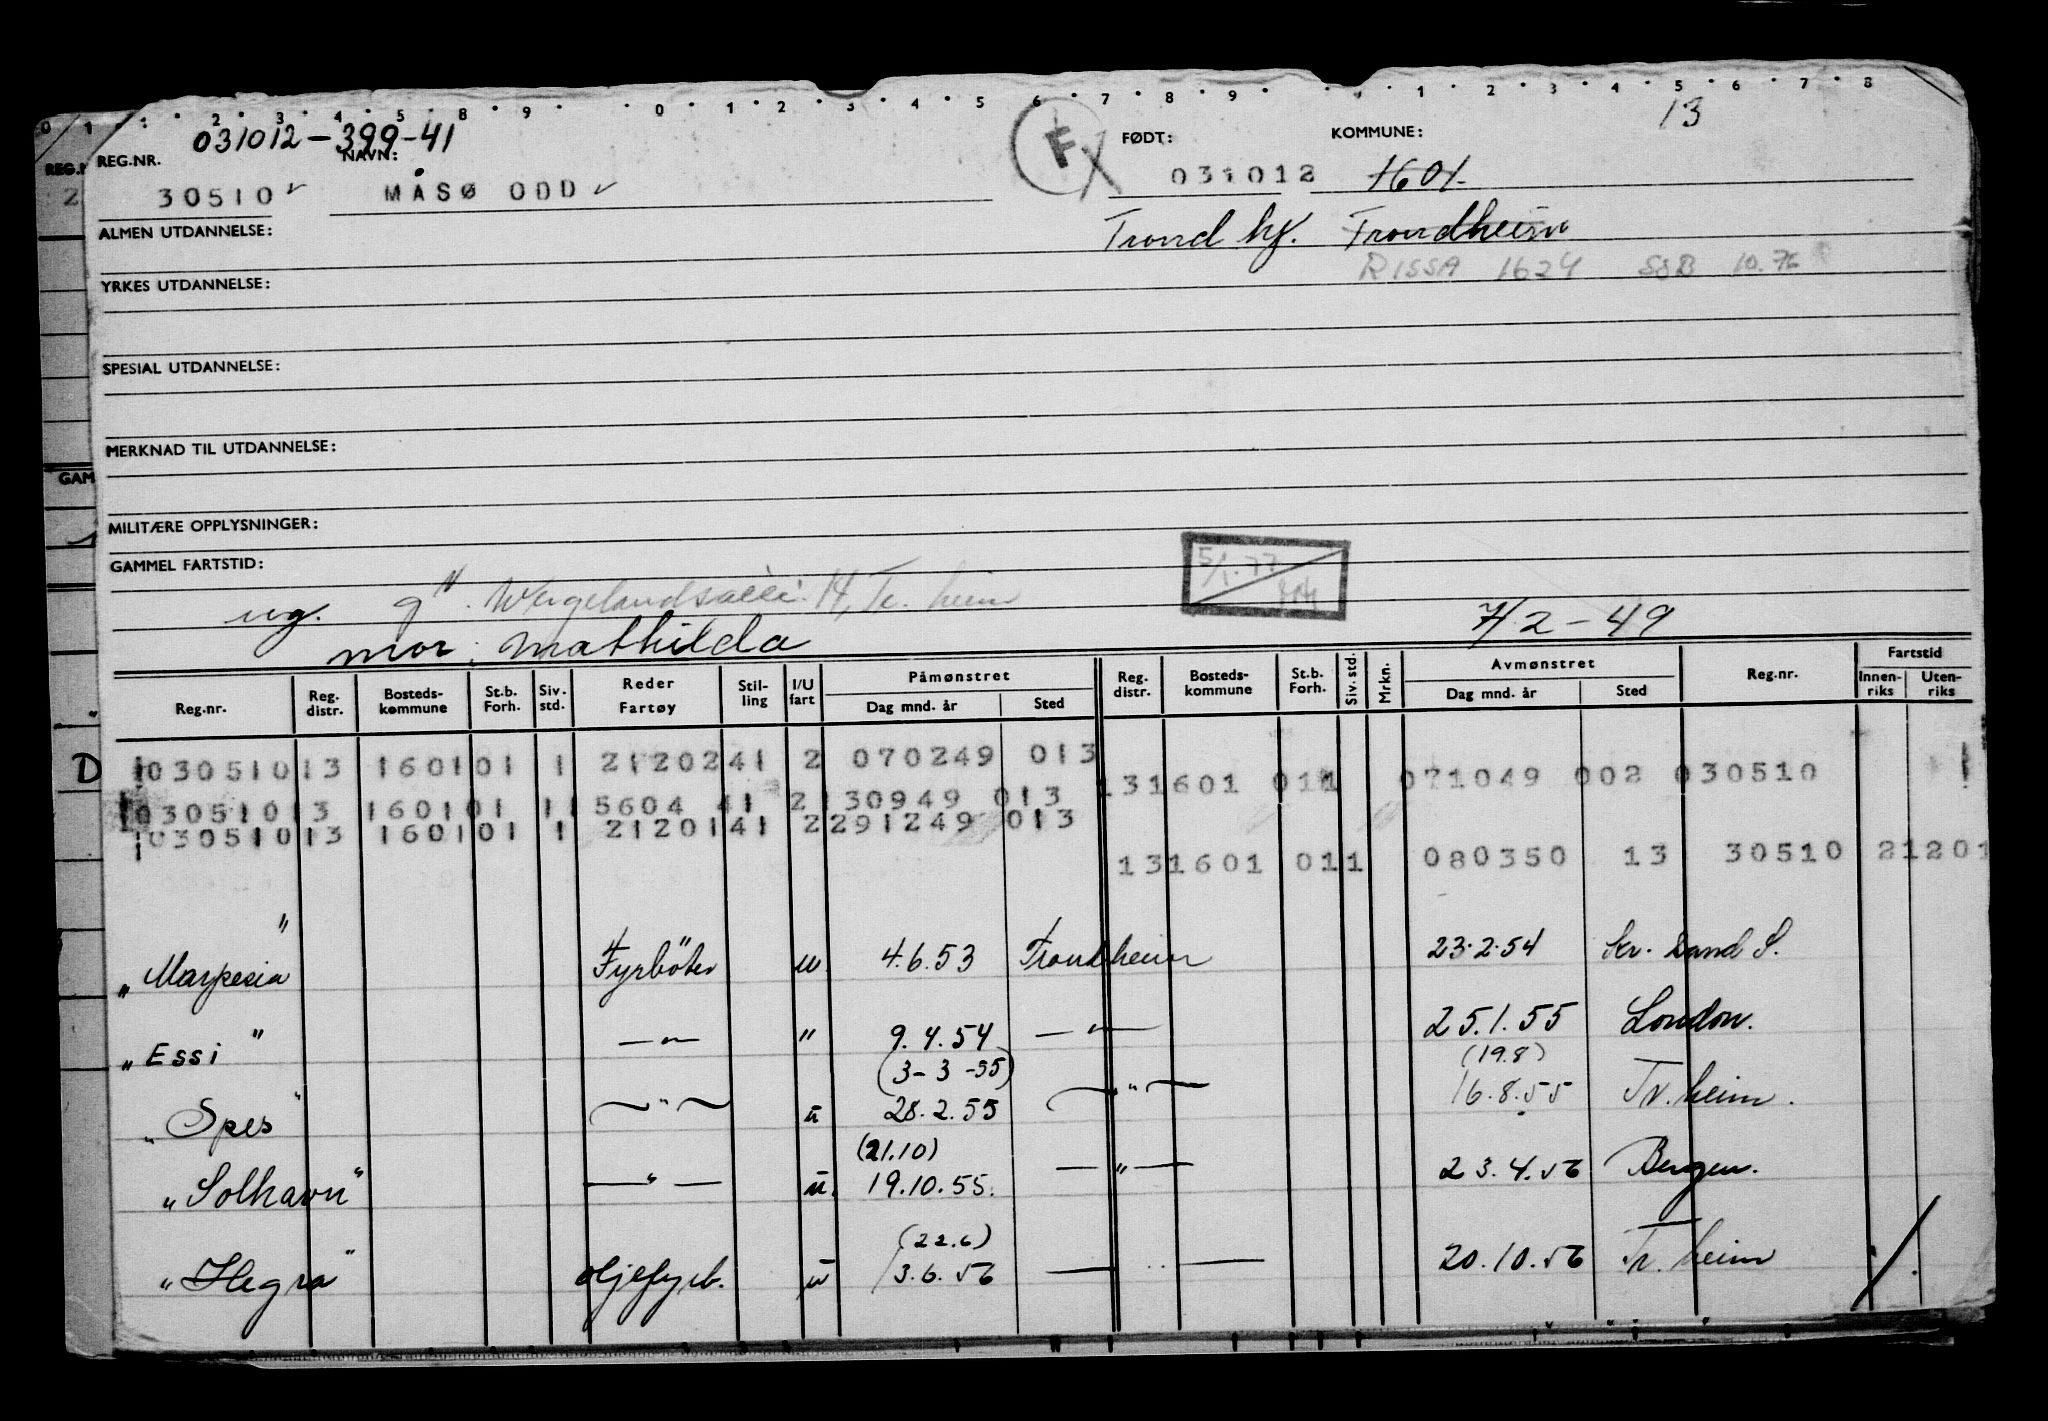 0 1 2 3 4 5 8 9 0 1 2 3 4 5 6 7 8 9 0 1 2 3 4 5 6 7 8
13
031012-399-41
REG.NR. NAVN: F FØDT: KOMMUNE:
30510 MÅSØ ODD 031012 1601
ALMEN UTDANNELSE: Trond hf. Trondheim
RISSA 1624 SSB 10.76
YRKES UTDANNELSE:
SPESIAL UTDANNELSE:
MERKNAD TIL UTDANNELSE:
GAM
MILITÆRE OPPLYSNINGER:
GAMMEL FARTSTID: 5/1.77
ug. g". Wergelandsallé 14, Tr. heim
mor: Mathilda 7/2-49
Reg.nr. Reg. distr. Bosteds- kommune St.b. Forh. Siv. std. Reder Fartøy Stil- ling I/U fart Påmønstret Dag mnd. år Sted Reg. distr. Bosteds- kommune St.b. Forh. Siv. std. Mrkn. Avmønstret Dag mnd. år Sted Reg.nr. Fartstid Innen- riks Uten- riks
D 030510 13 1601 01 1 21202 41 2 070249 013
13 1601 01 1 071049 002 030510 1
030510 13 1601 01 1 5604 41 2 130949 013
030510 13 1601 01 1 21201 41 2 291249 013
13 1601 01 1 080350 13 30510 21201
"Marpesia" Fyrbøter u. 4.6.53 Trondheim 23.2.54 Kr. sand S.
"Essi" —"— " 9.4.54 —"— 25.1.55 London.
(3-3-55) (19.8)
"Spes" —"— u 28.2.55 —"— 16.8.55 Tr. heim.
(21.10)
"Solhavn" —"— u. 19.10.55. —"— 23.4.56 Bergen.
(22.6)
"Hegra" oljefyrb. u 13.6.56 —"— 20.10.56 Tr. heim